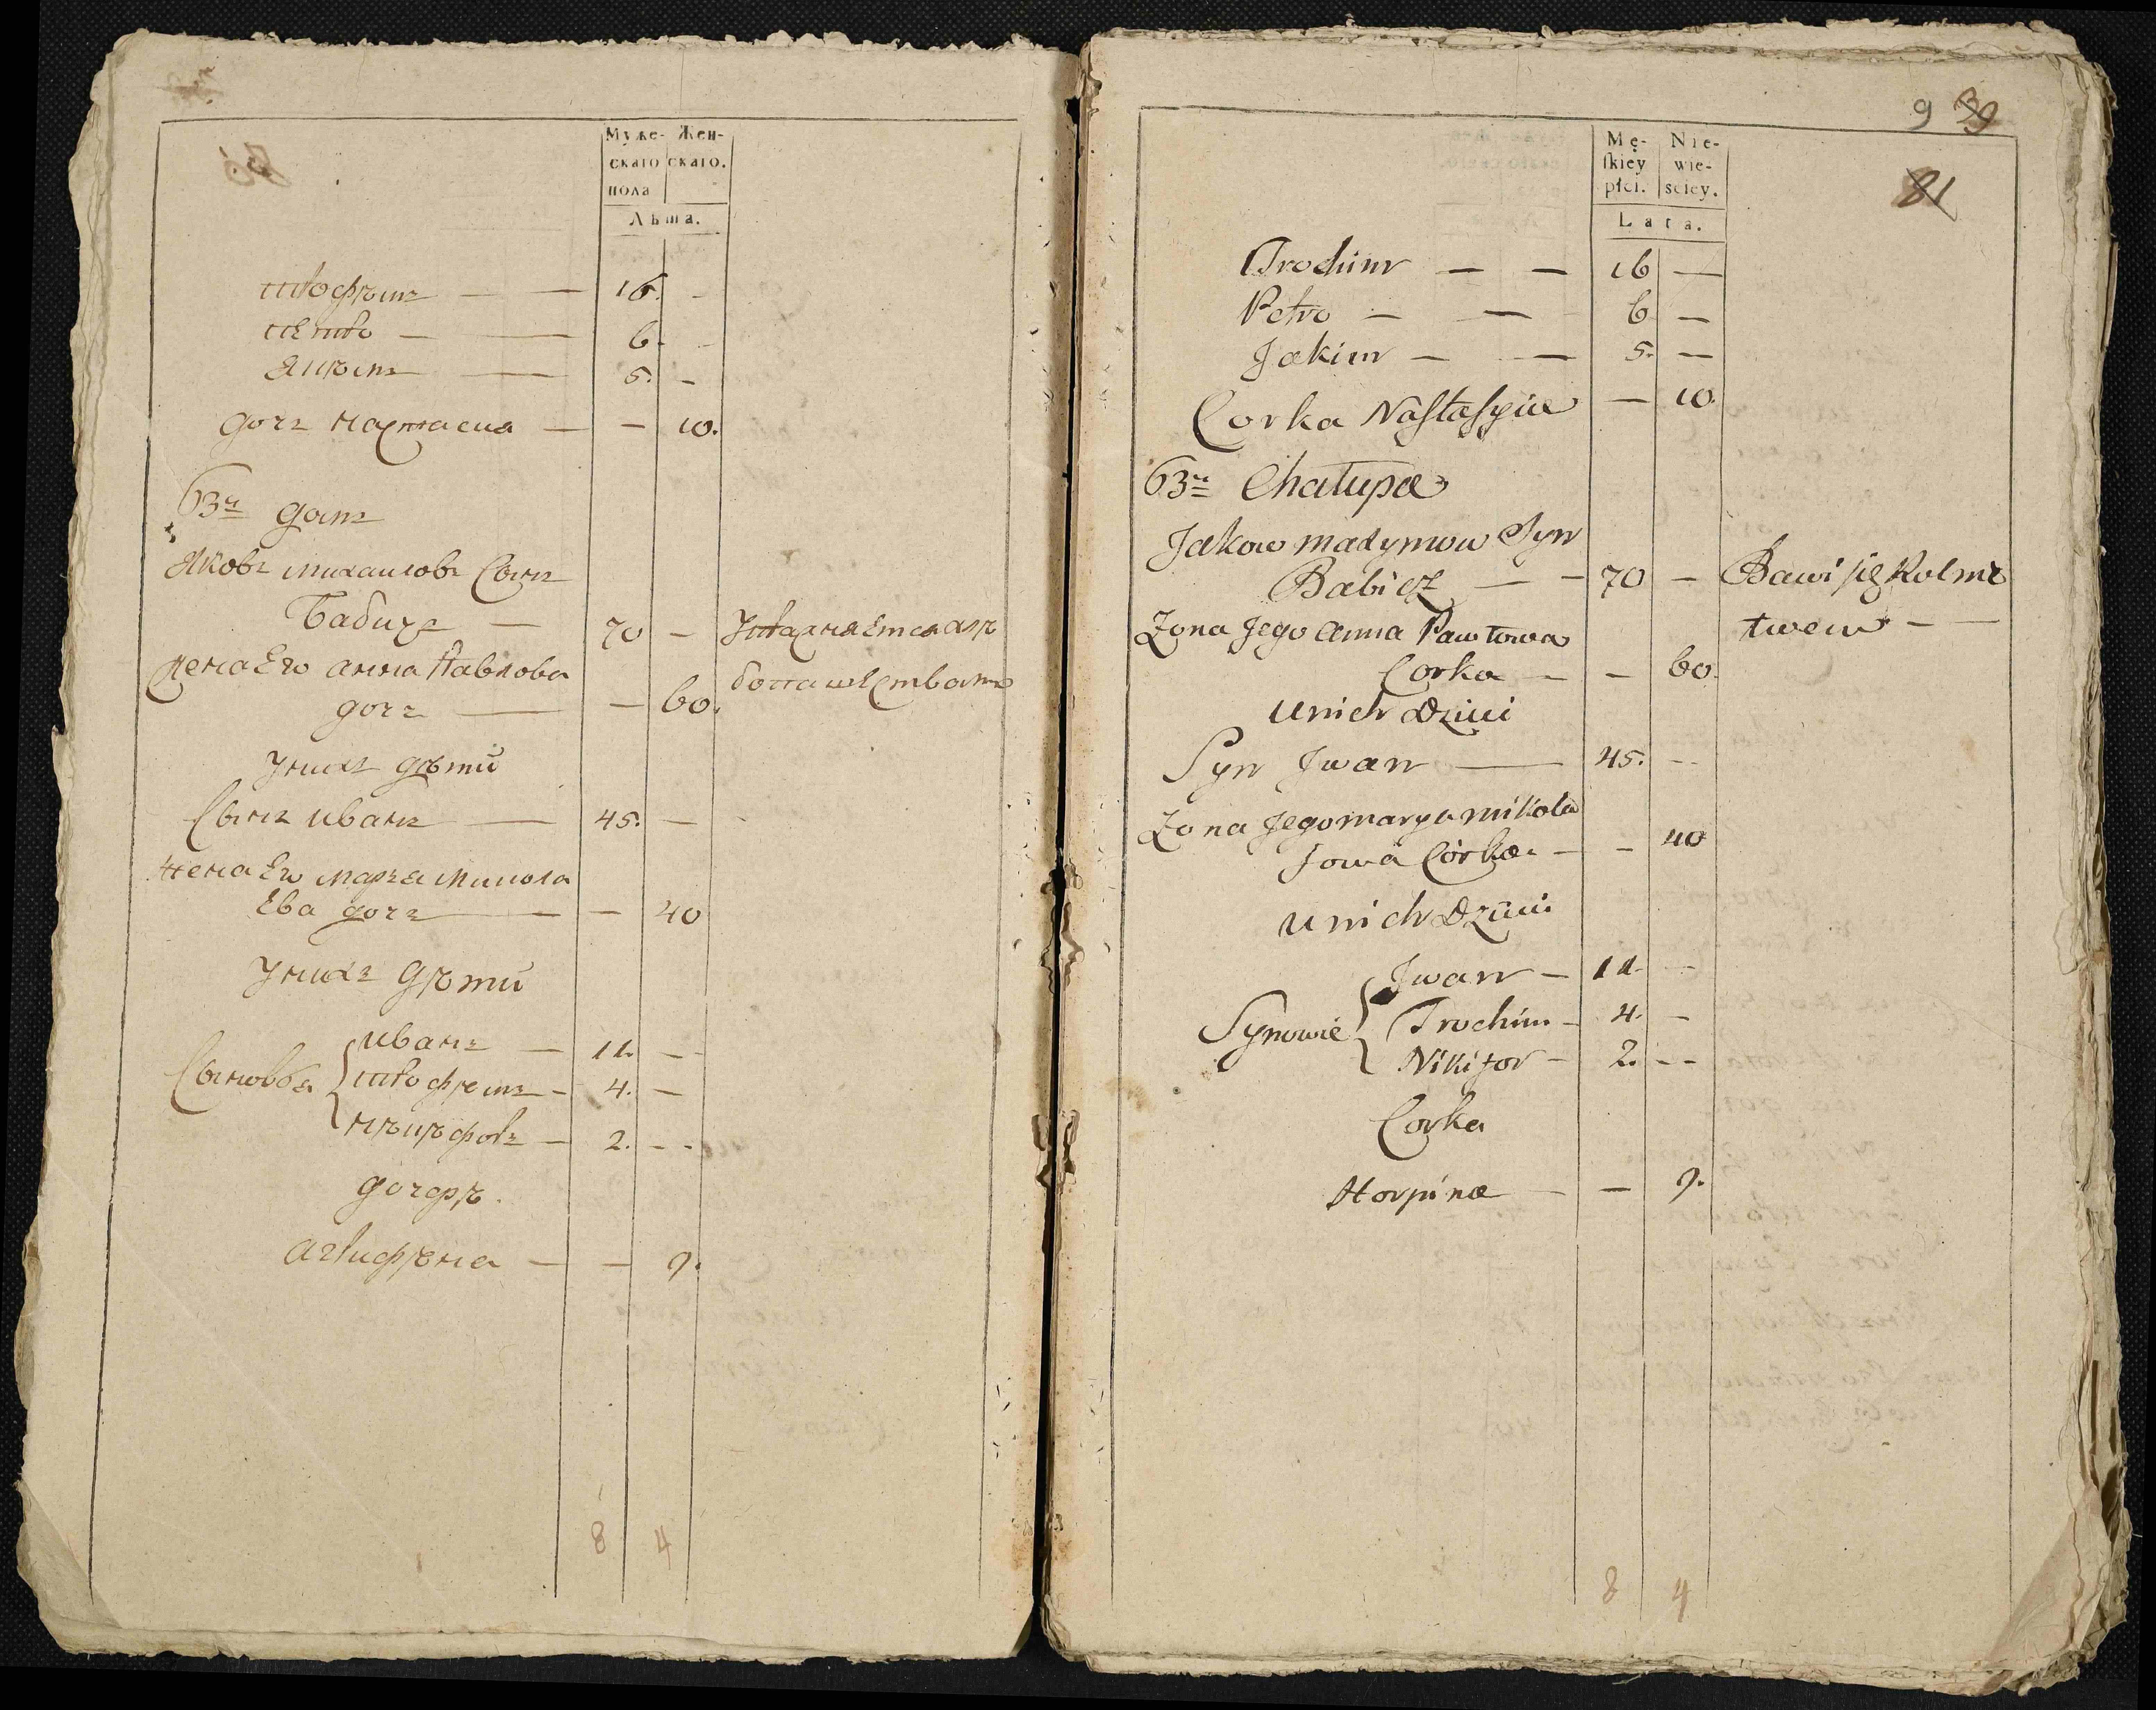 Муже- Жен-
скаго скаго.
пола
Лѣта.
трофимъ — — 16. -
петро — — 6. -
Якимъ — 5. -
дочь настасия — — 10.
63й домъ
Яковъ михаиловъ Сынъ
Бабичъ — 70 — Упражняется хлѣ
жена Ево анна Павлова
дочь — — 60. бопашествомъ
Унихъ дѣти
Сынъ иванъ — 45. —
жена Ево марья микола
Ева дочь — — 40
Унихъ дѣти
иванъ — 11. —
Сыновья трофимъ — 4. —
никифоръ — 2. - -
дочерь.
— — 9.
8 4
9 39
Mę- Nie-
ſkiey wie-
płci. sciey.
81
Lata.
Trochim — — 16 —
Petro — — 6 —
Jakim — — 5. —
Corka Naſtaſyia — 10.
63ci Chałupa
Jakow Syn
Babicz — — 70 — Bawi ſię Rolni
Zona Jego anna Pawłowa twem — —
Corka — — 60.
Unich Dzieci
Syn Jwan — 45. --
Zona Jego marya mikoła
Jowa Corka — — 40
Unich Dzieci
Jwan — 11. —
Synowie Trochim — 4. —
Nikifor — 2. - -
Corka
Horpina — — 9.
8 4